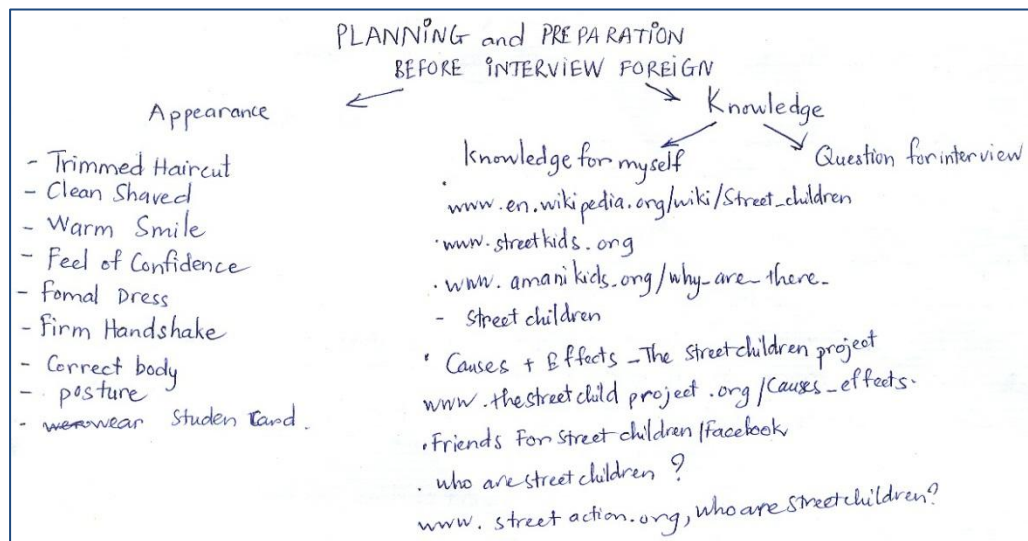 PLANNING and PREPARATION
BEFORE INTERVIEW FOREIGN
Appearance
- Trimmed Haircut
- Clean Shaved
- Warm Smile
- Feel of Confidence
- Fomal Dress
- Firm Handshake
- Correct body
- posture
- wear Studen Card.
Knowledge
Knowledge for myself
· www.en.wikipedia.org/wiki/Street_children
· www.streetkids.org
· www.amanikids.org/why-are-there-
- Street children
· Causes + Effects - The streetchildren project
www.thestreetchild project.org/Causes_effects.
· Friends For Street children/Facebook
· who are street children ?
www.street action.org, who are streetchildren?
Question for interview